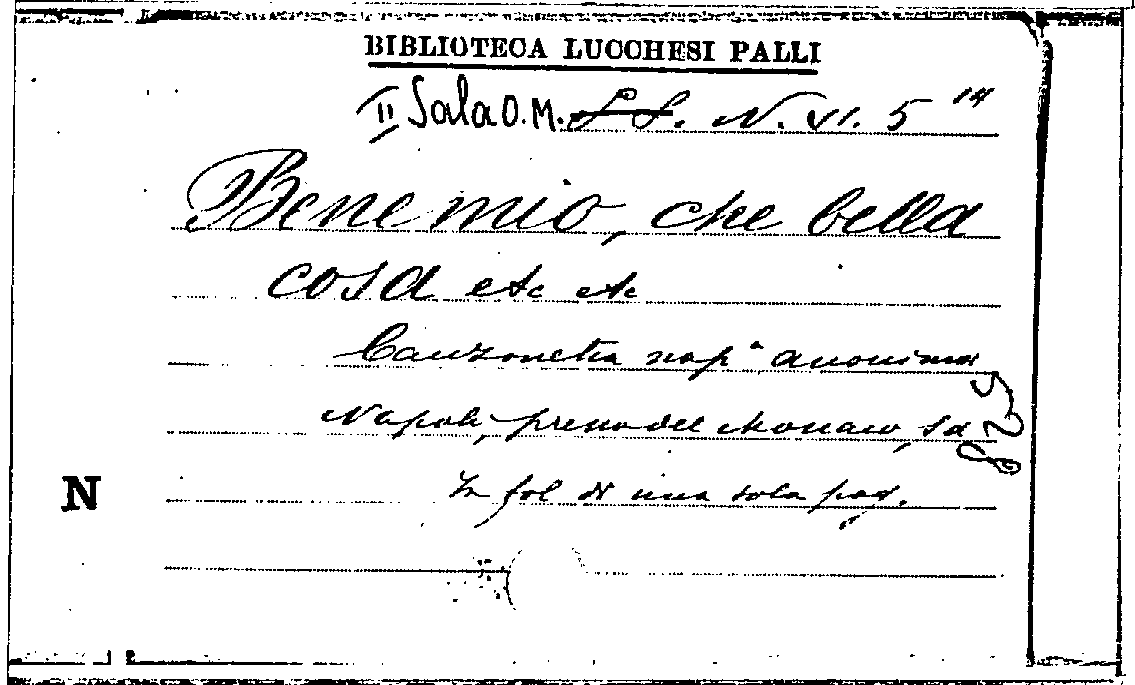 BIBLIOTECA LUCCHESI PALLI
II Sala O. M. S. S. N. VI. 5 14
Bene mio, che bella
cosa etc etc
Canzonetta nap.a anonima
Napoli, presso del Monaco, s d
829
In fol di una sola pag.
N